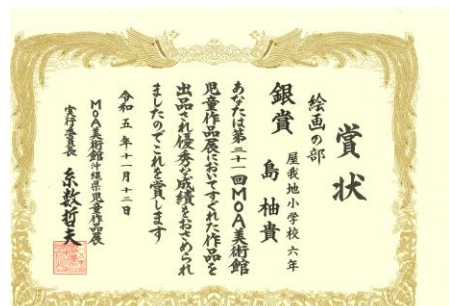 賞状
絵画の部
屋我地小学校 六年
銀賞 島袖貴
あなたは第三十一回MOA美術館
児童作品展においてすぐれた作品を
出品され優秀な成績をおさめられ
ましたのでこれを賞します
令和五年十一月十二日
MOA美術館沖縄県児童作品展
実行委員長 糸数哲夫